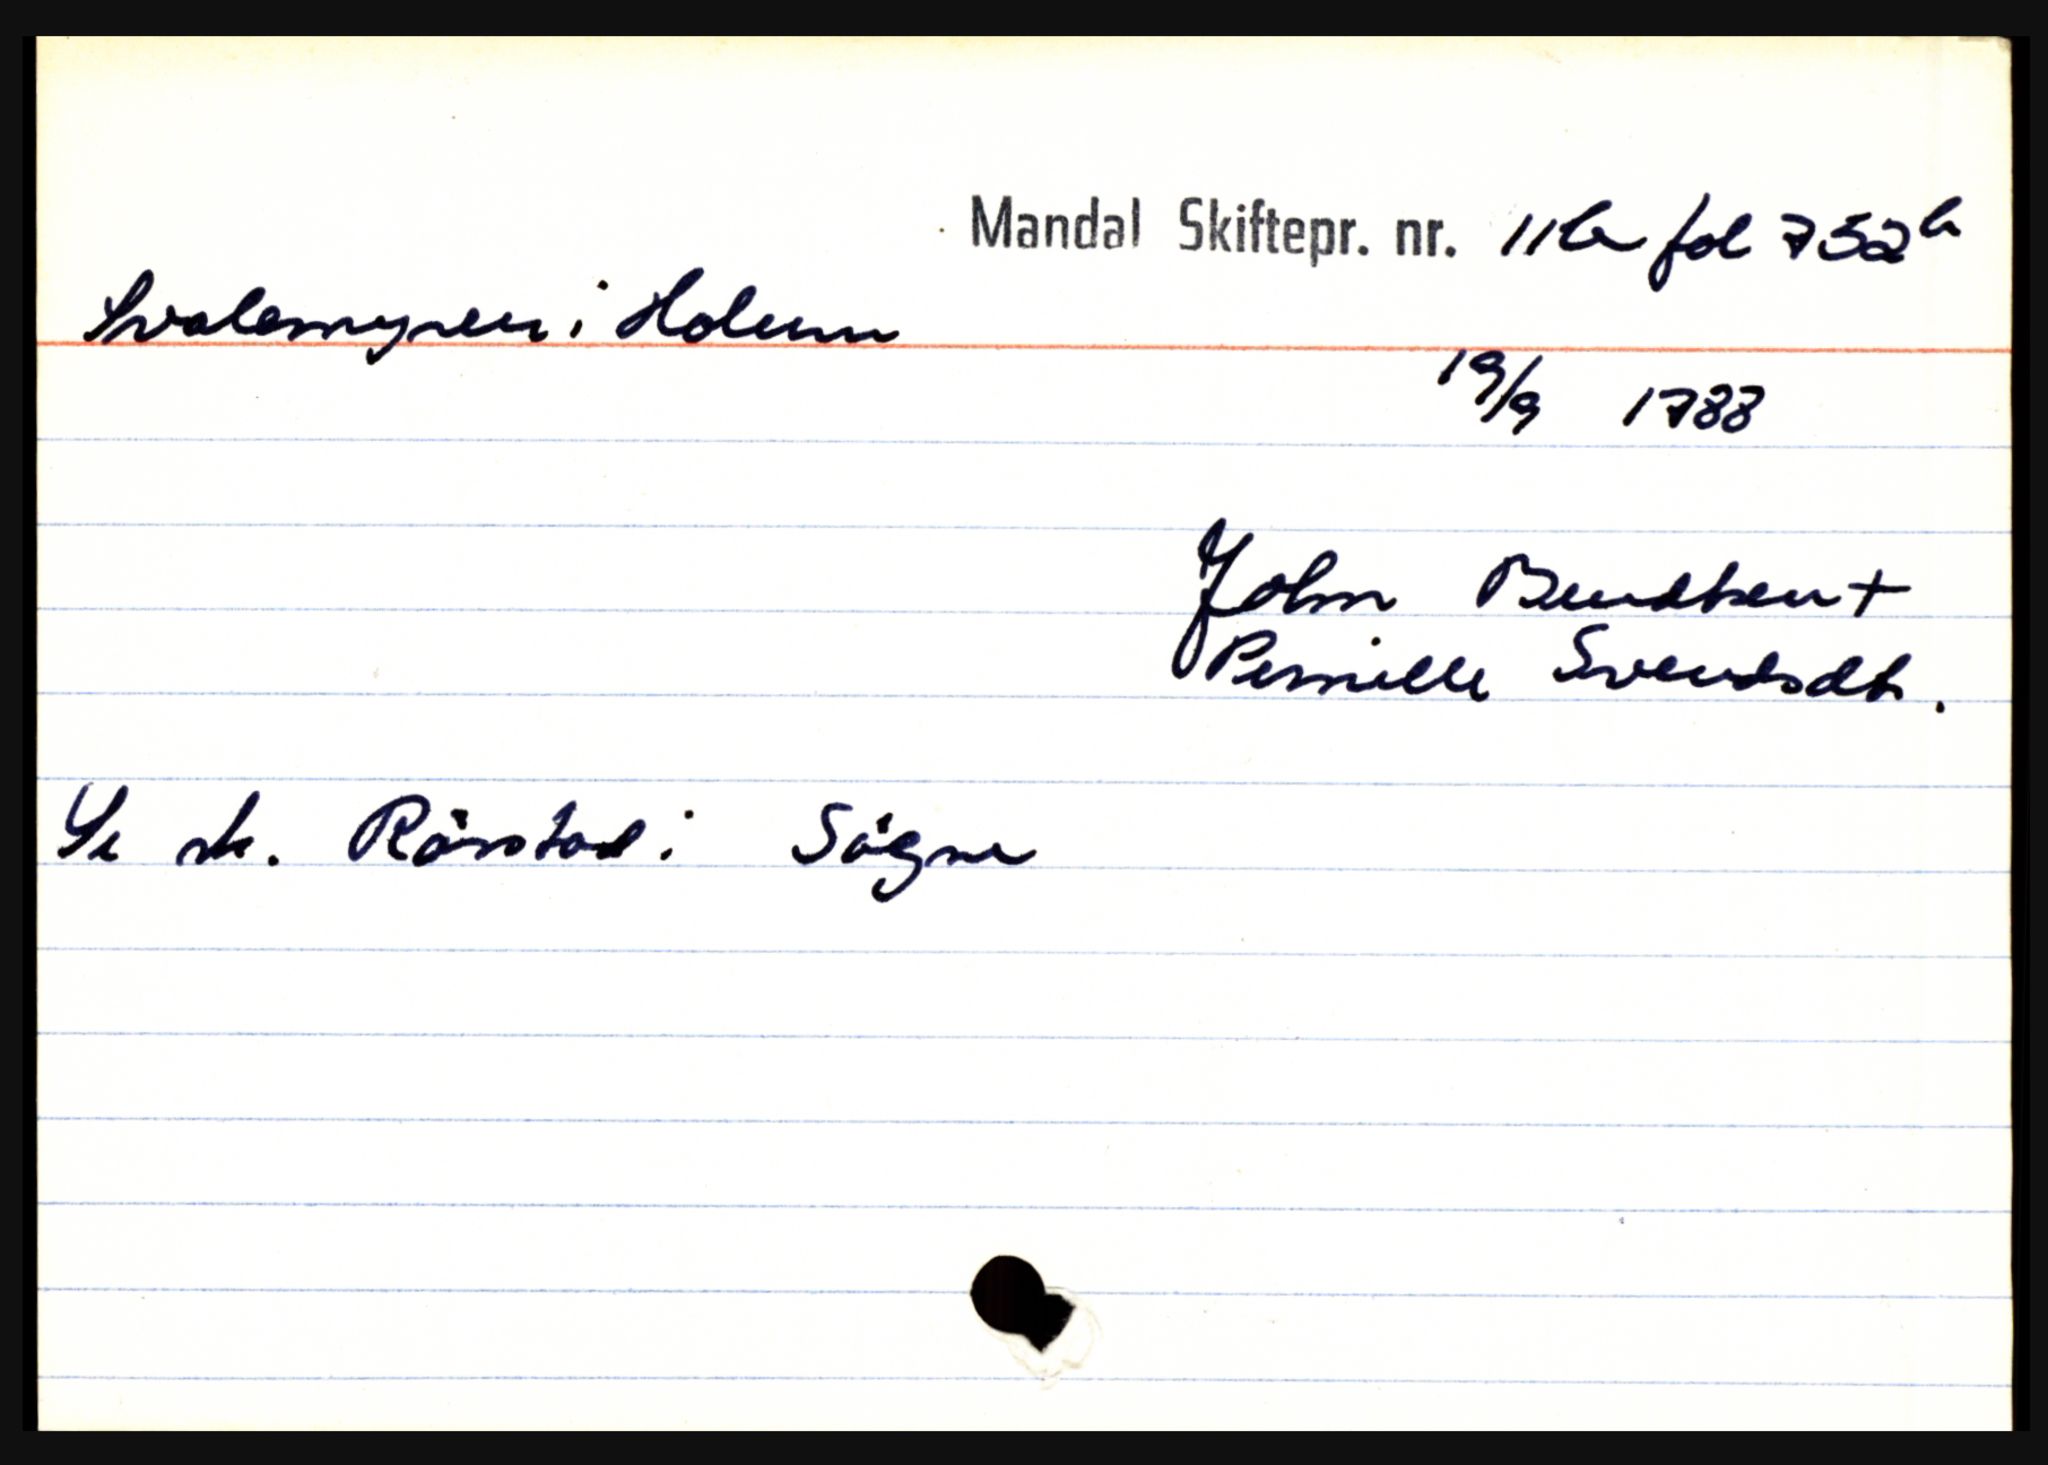 Mandal Skiftepr. nr. 11b fol 752b
Svalemyren i Holum
19/9 1788
John Bendtsen +
Pernille Svendsdt.
Se sk. Rårstad i Søgne